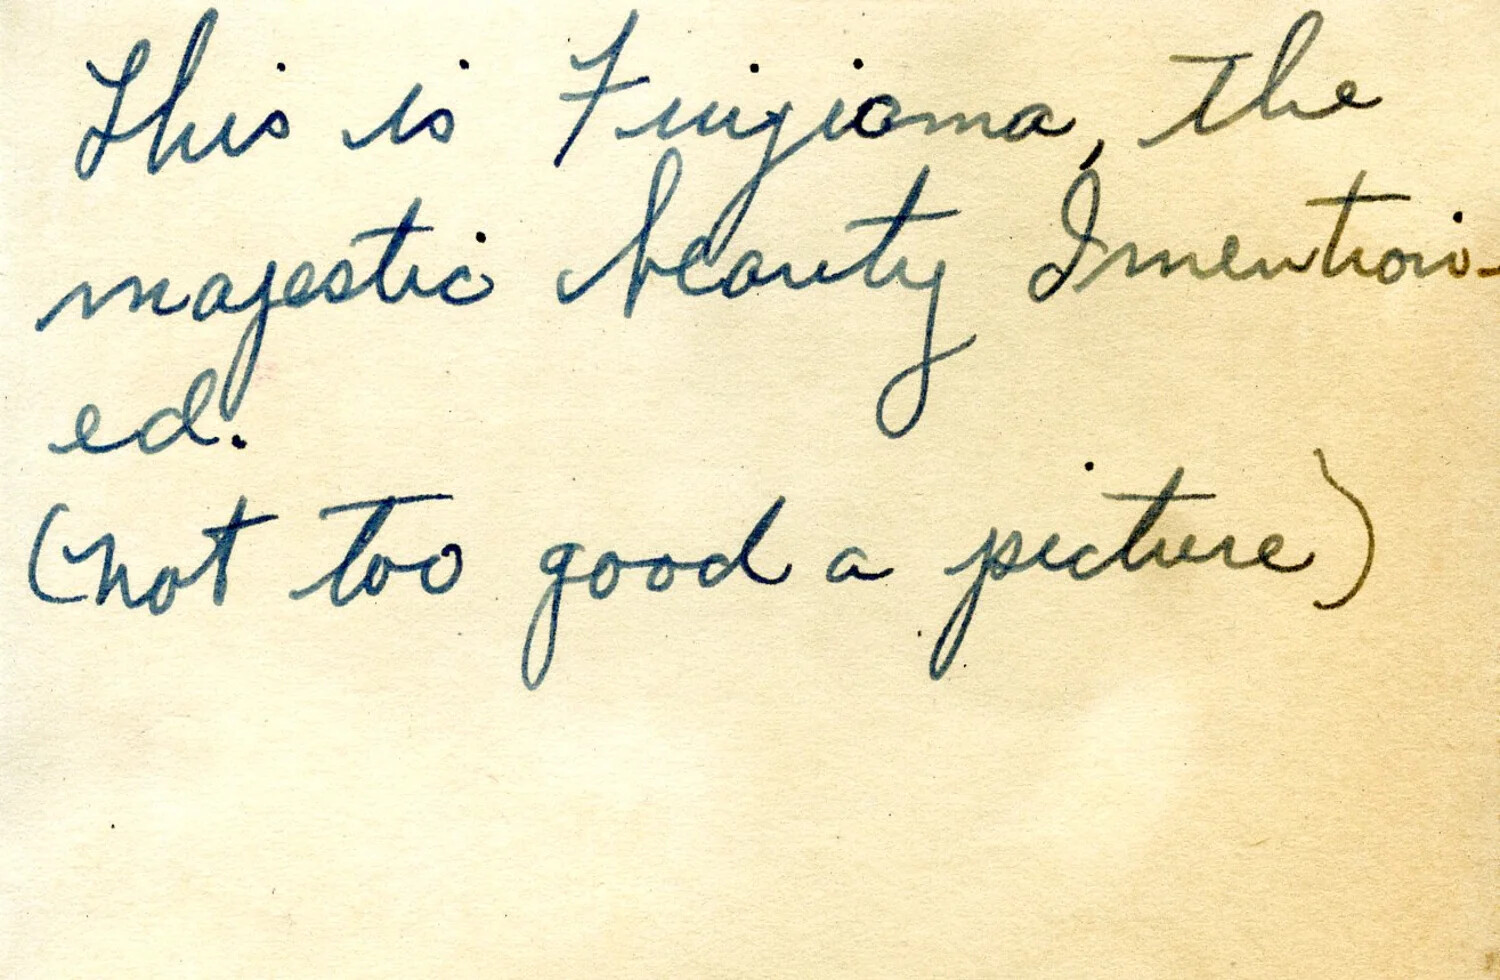 This is Fuijioma, the
majestic beauty I mention-
ed.
(not too good a picture)